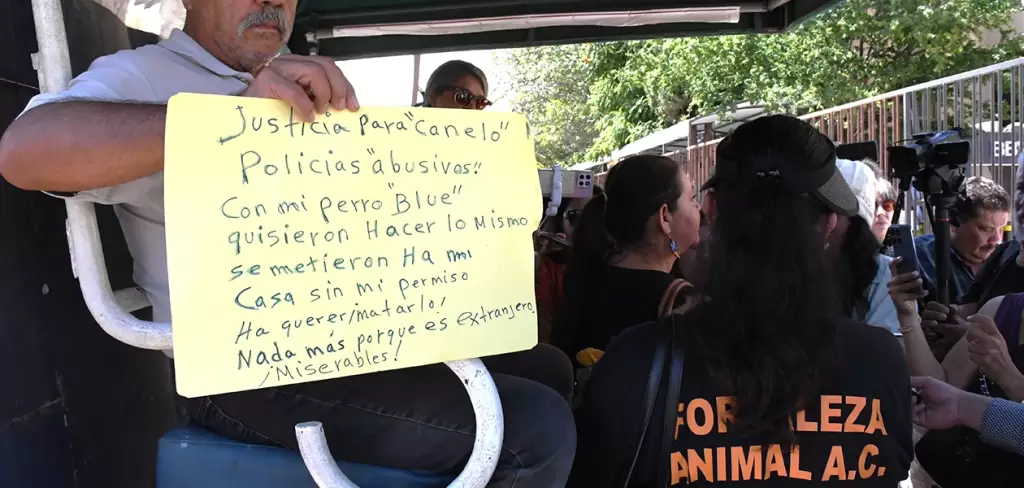 Justicia para "Canelo"
Policias "abusivos!
Con mi perro "Blue"
quisieron Hacer lo Mismo
se metieron Ha mi
Casa sin mi permiso
Ha querer/matarlo!
Nada más porque es extranjero,
¡Miserables!
FORTALEZA
ANIMAL A.C.